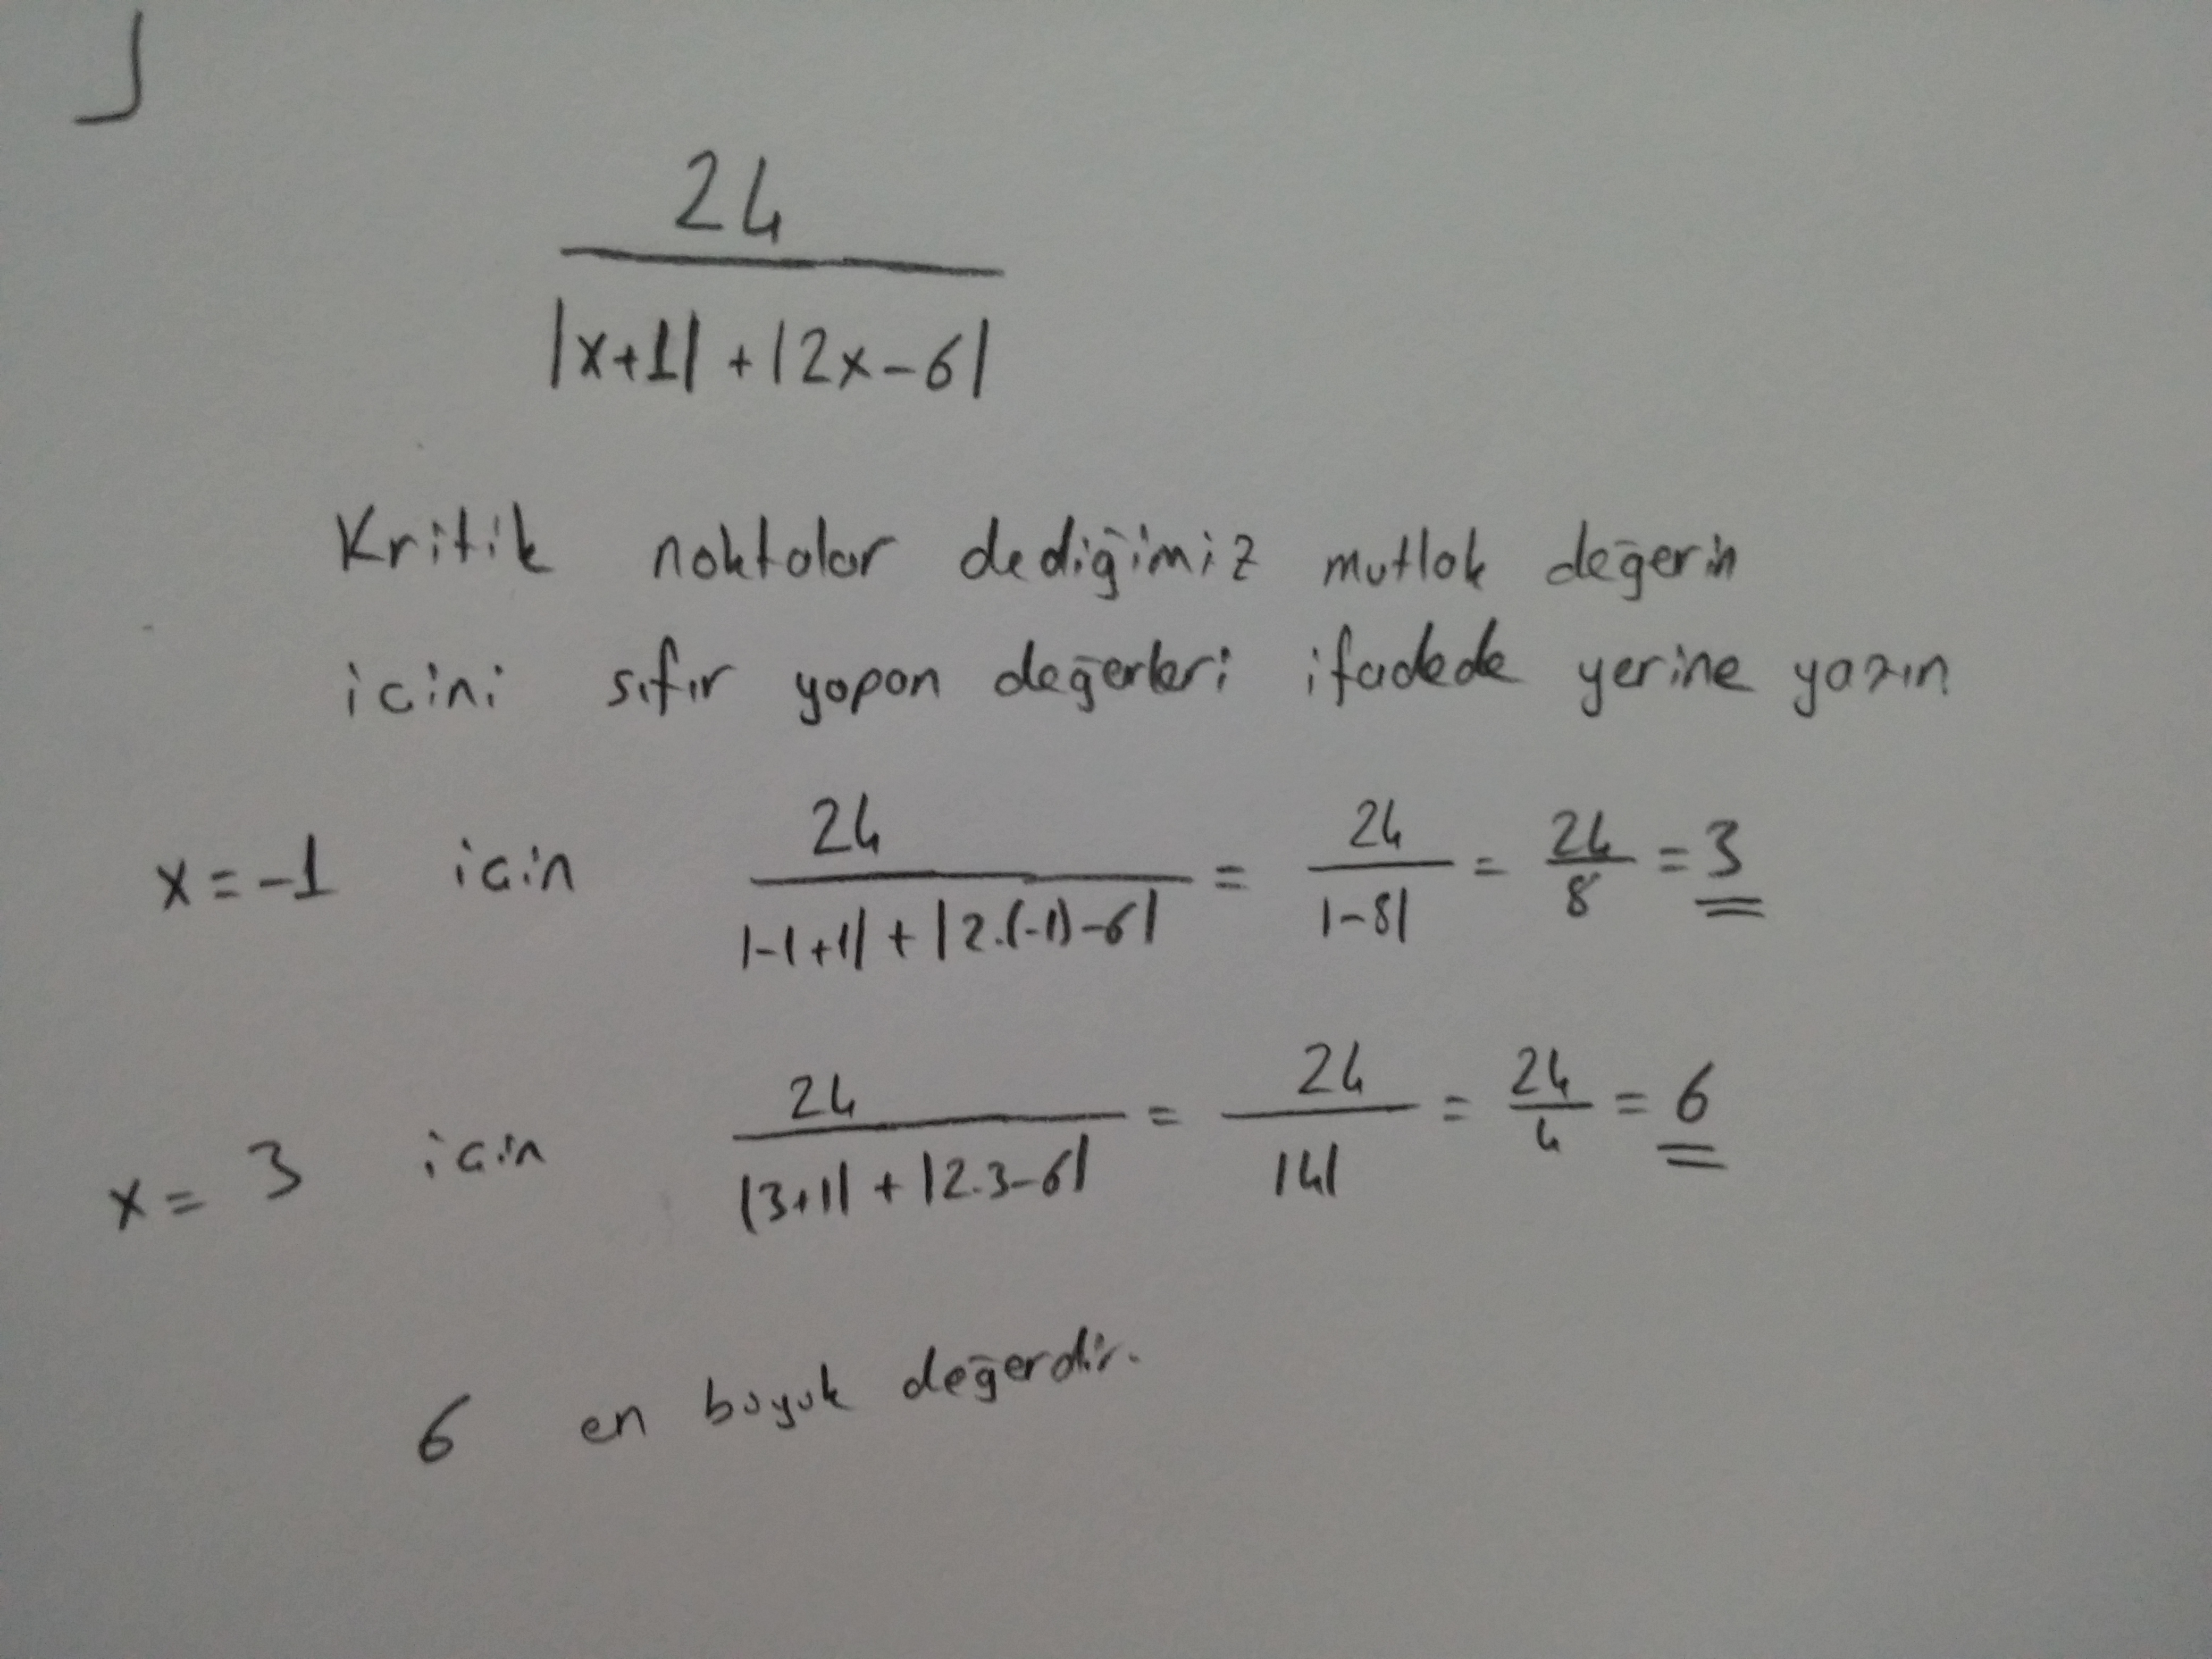 24
|x+1| + |2x-6|
Kritik noktalar dediğimiz mutlak değerin
icini sıfır yapan değerleri ifadede yerine yazın
x=-1 icin 24 / |-1+1| + |2.(-1)-6| = 24 / |-8| = 24 / 8 = 3
x= 3 icin 24 / |3+1| + |2.3-6| = 24 / |4| = 24 / 4 = 6
6 en buyuk değerdir.